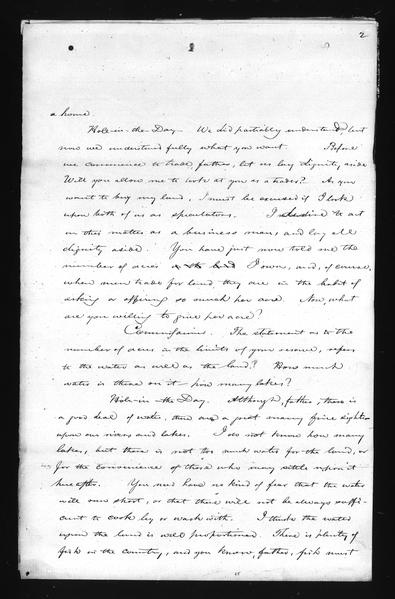 2
a home.
Hole-in-the-Day. We did partially understand but
now we understand fully what you want. Before
we commence to trade, father, let us lay dignity aside
Will you allow me to look at you as a trader? As you
want to buy my land, I must be excused if I look
upon both of us as speculators. I desired to act
in this matter as a business man, and lay all
dignity aside. You have just now told me the
number of acres I own, and, of course,
when men trade for land, they are in the habit of
asking or offering so much per acre. Now, what
are you willing to give per acre?
Commissioner. The statement as to the
number of acres in the limits of your reserve, refers
to the water as well as the land.? How much
water is there on it – how many lakes?
Hole-in-the-Day. Although, father, there is
a good deal of water, there are a great many fine sights
upon our rivers and lakes. I do not know how many
lakes, but there is not too much water for the land, or
for the convenience of those who may settle upon it
hereafter. You need have no kind of fear that the water
will run short, or that there will not be always suffi-
cient to cook by or wash with. I think the water
upon the land is well proportioned. There is plenty of
fish in the country, and you know, father, fish must